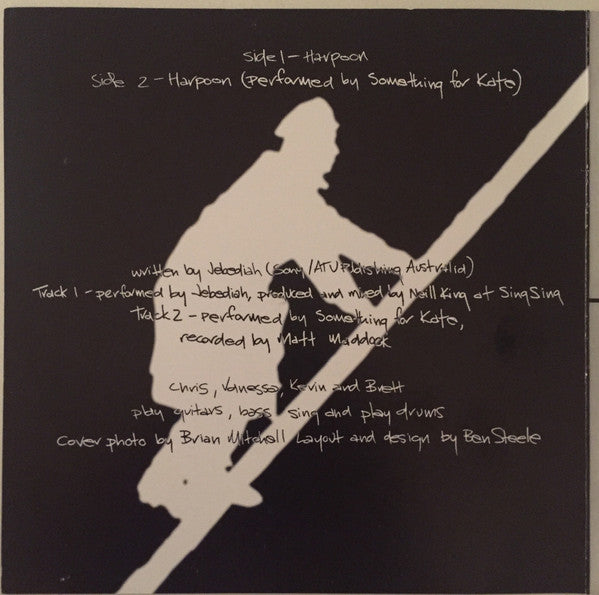 Side 1 - Harpoon
Side 2 - Harpoon (performed by Something for Kate)
written by Jebediah (Sony/ATV Publishing Australia)
Track 1 - performed by Jebediah, produced and mixed by Neill King at Sing Sing
Track 2 - performed by Something for Kate,
recorded by Matt Maddock
Chris, Vanessa, Kevin and Brett
play guitars, bass, sing and play drums
Cover photo by Brian Mitchell Layout and design by Ben Steele